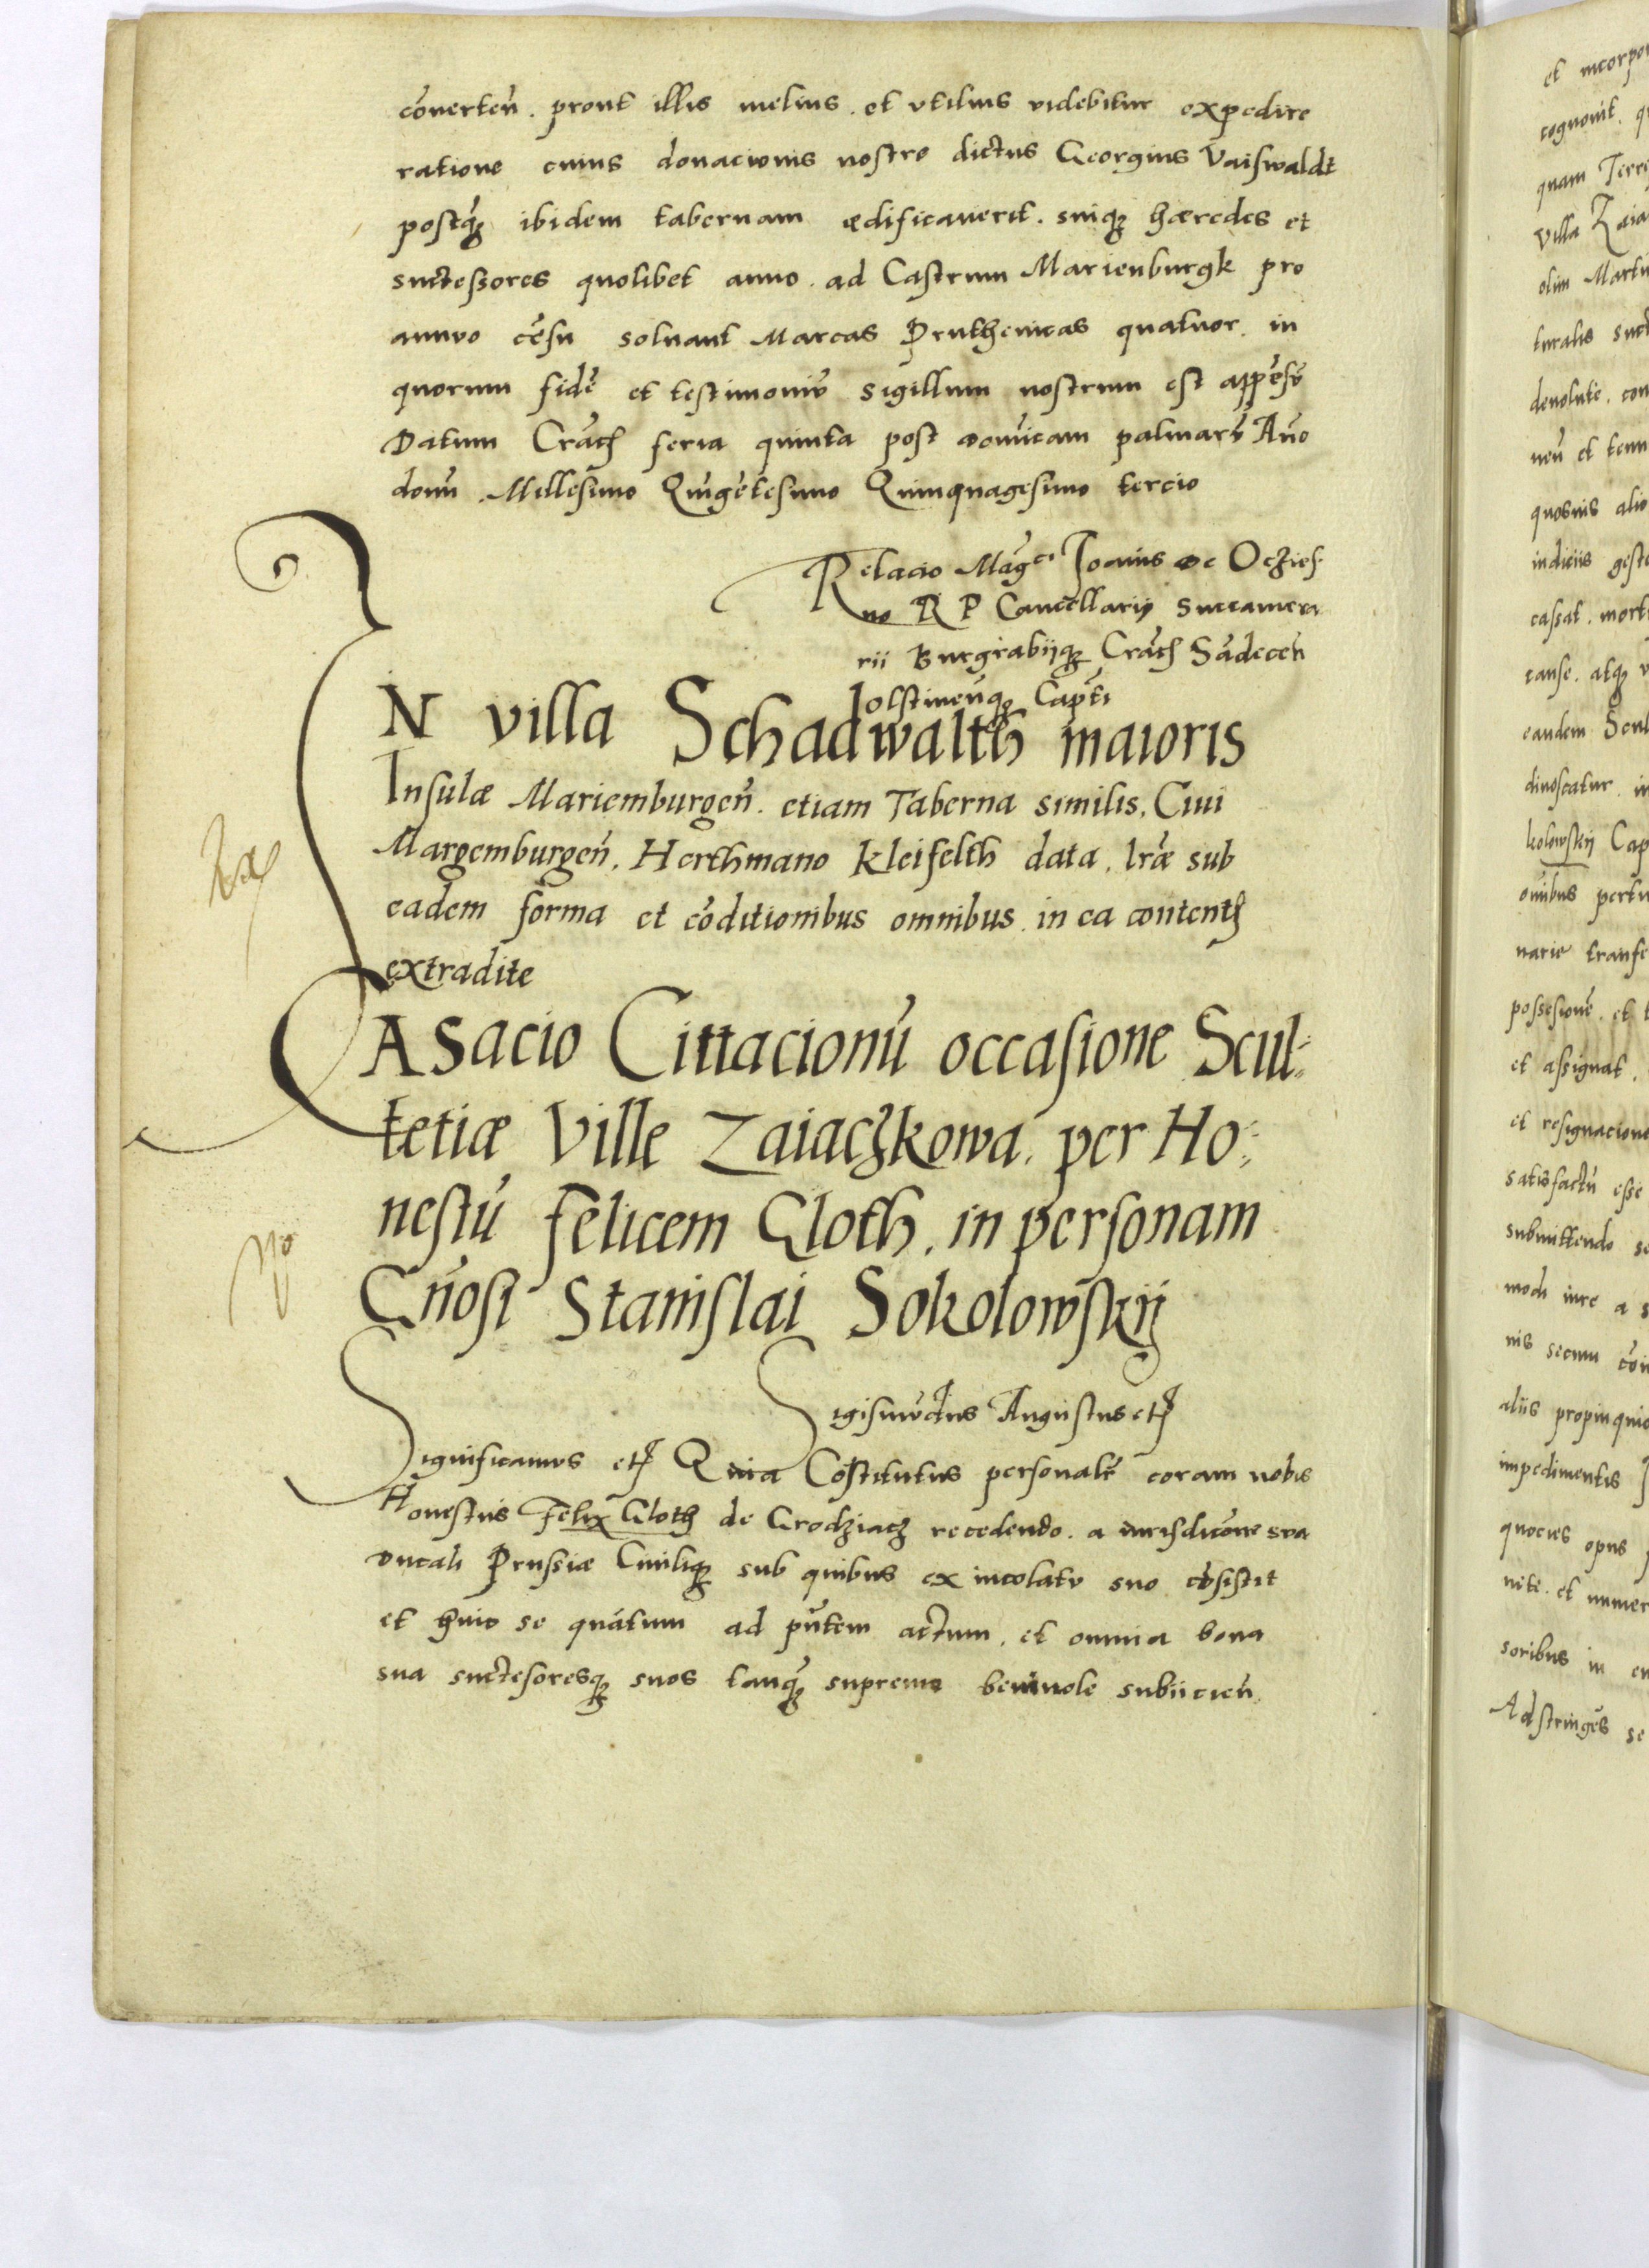 cōuerteñ. prout illis melius. et vtilius videbitur expedire
ratione cuius donacionis nostre dictus Georgius Vaiswaldt
postq̃ꝫ ibidem tabernam ædificauerit. suiqꝫ hæredes et
successores quolibet anno. ad Castrum Marienburgk pro
annuo cēsu soluant Marcas Pruthenicas quatuor. in
quorum fidē et testimoniū sigillum nostrum est appēsū
Datum Cracꝭ feria quinta post domīcam palmarū Año
domī. Millesimo Quīgētesimo Quinquagesimo tercio
Relacio Mãgci Joañis de Oczies-
no R P Cancellarij Succamera
rii Burgrabijqꝫ Cracꝭ Sādeceñ
olstineñqꝫ Capti
IN villa Schadwalth maioris
Insulæ Mariemburgeñ. etiam Taberna similis. Ciui
Margemburgeñ. Herthmano Kleifelth data. lr̃æ sub
eadem forma et cōditionibus omnibus. in ea contentꝭ
extradite
CASacio Cittacionū occasione Scul-
tetiæ Ville Zaiaczkowa. per Ho-
nestū Felicem Gloth. in personam
Gñosi Stanislai Sokolowskij
Sigismūdus Augustus etꝭ
Significamus etꝭ Quia Cōstitutus personalr̃ coram nobis
Honestus Felix Gloth de Grodziacz recedendo. a iurisdicōne sua
ducali Prussiæ Ciuiliqꝫ sub quibus ex incolatu suo cōsistit
et huic se quātum ad pñtem actum. et omnia bona
sua successoresqꝫ suos tanq̃ꝫ supreme beniuole subiicieñ
et incorpo
cognouit. q
quam Terre
villa Zaia
olim Marti
turalis suc
deuolute. con
neñ et tenu
quosuis alio
indiciis gest
cassat. mort
cause. atqꝫ
eandem Scul
dinoscatur. in
kolowskij Cap
oībus pertin
narie transf
possesionē. et
et assignat.
et resignacione
satisfactū esse
submittendo se
modi iure a
nis secum cōi
aliis propinqui
impedimentis
quocies opus
nite. et numer
soribus in
Adstringēs se